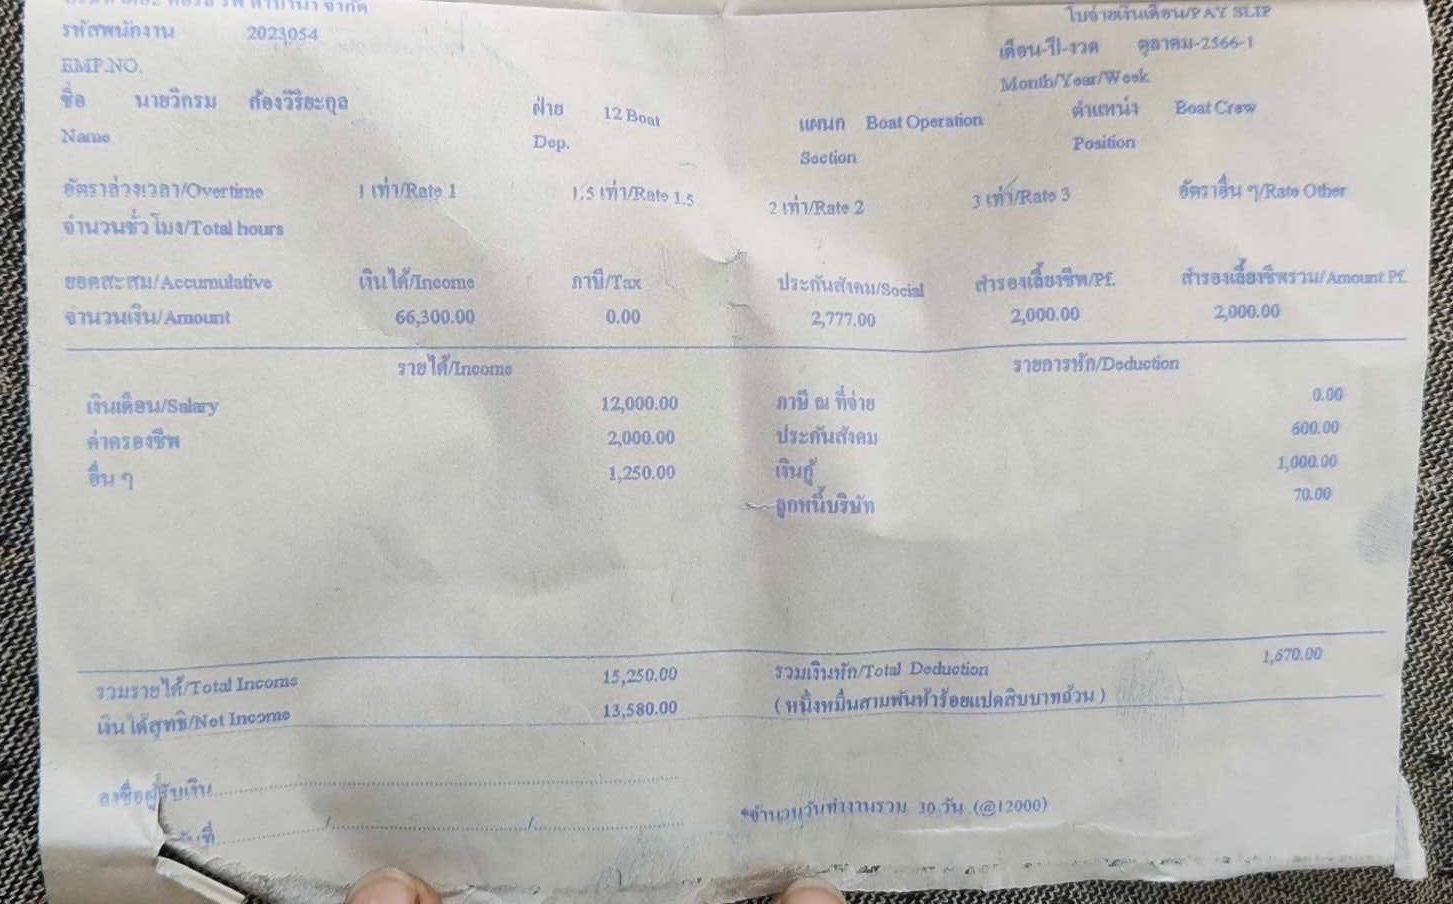 จำกัด
ใบจ่ายเงินเดือน/PAY SLIP
รหัสพนักงาน 2023054 เดือน-ปี-งวด ตุลาคม-2566-1
EMP.NO. Month/Year/Week
ชื่อ นายวิกรม ก้องวิริยะกุล ฝ่าย 12 Boat แผนก Boat Operation ตำแหน่ง Boat Crew
Name Dep. Section Position
อัตราล่วงเวลา/Overtime 1 เท่า/Rate 1 1.5 เท่า/Rate 1.5 2 เท่า/Rate 2 3 เท่า/Rate 3 อัตราอื่น ๆ/Rate Other
จำนวนชั่วโมง/Total hours
ยอดสะสม/Accumulative เงินได้/Income ภาษี/Tax ประกันสังคม/Social สำรองเลี้ยงชีพ/Pf. สำรองเลี้ยงชีพรวม/Amount Pf.
จำนวนเงิน/Amount 66,300.00 0.00 2,777.00 2,000.00 2,000.00
รายได้/Income รายการหัก/Deduction
เงินเดือน/Salary 12,000.00 ภาษี ณ ที่จ่าย 0.00
ค่าครองชีพ 2,000.00 ประกันสังคม 600.00
อื่น ๆ 1,250.00 เงินกู้ 1,000.00
ลูกหนี้บริษัท 70.00
รวมรายได้/Total Income 15,250.00 รวมเงินหัก/Total Deduction 1,670.00
เงินได้สุทธิ/Net Income 13,580.00 (หนึ่งหมื่นสามพันห้าร้อยแปดสิบบาทถ้วน)
ลงชื่อผู้รับเงิน
วันที่ / /
*จำนวนวันทำงานรวม 30 วัน (@12000)